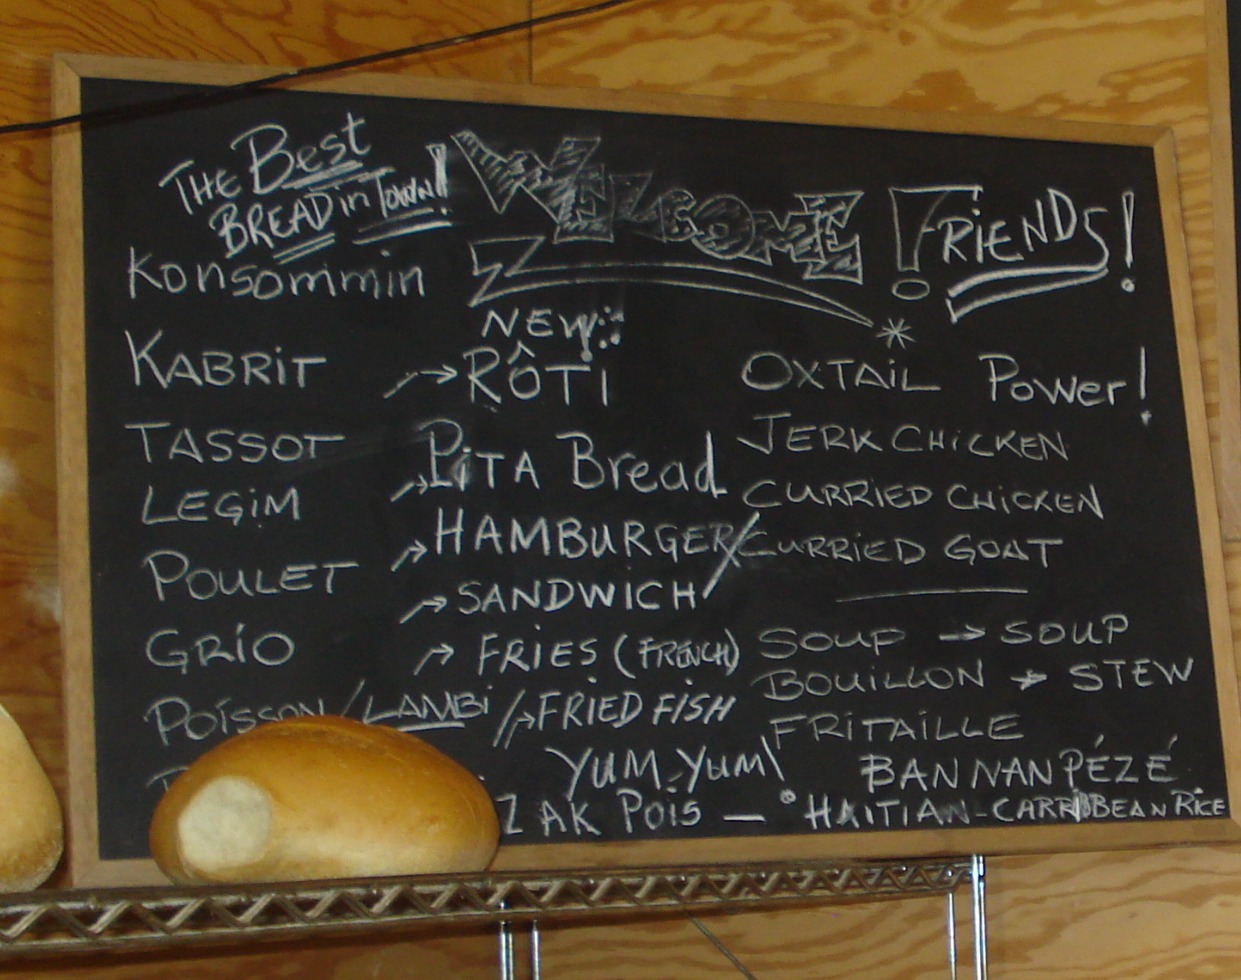 THE Best
BREAD in TOWN!
WELCOME! FRiENDS!
Konsommin
KABRiT
TASSOT
LEGiM
POULET
GRíO
POíSSON/LAMBi
NEW:
→ RÔTi
→ PiTA Bread
→ HAMBURGER/
→ SANDWiCH
→ FRiES (FRENCH)
/→ FRiED FiSH
YUM YUM!
OXTAiL Power!
JERK CHiCKEN
CURRiED CHiCKEN
CURRiED GOAT
SOUP → SOUP
BOUiLLON → STEW
FRiTAiLLE
BANNAN PÉZÉ
AK POiS — HAiTiAN-CARRIBBEAN RiCE